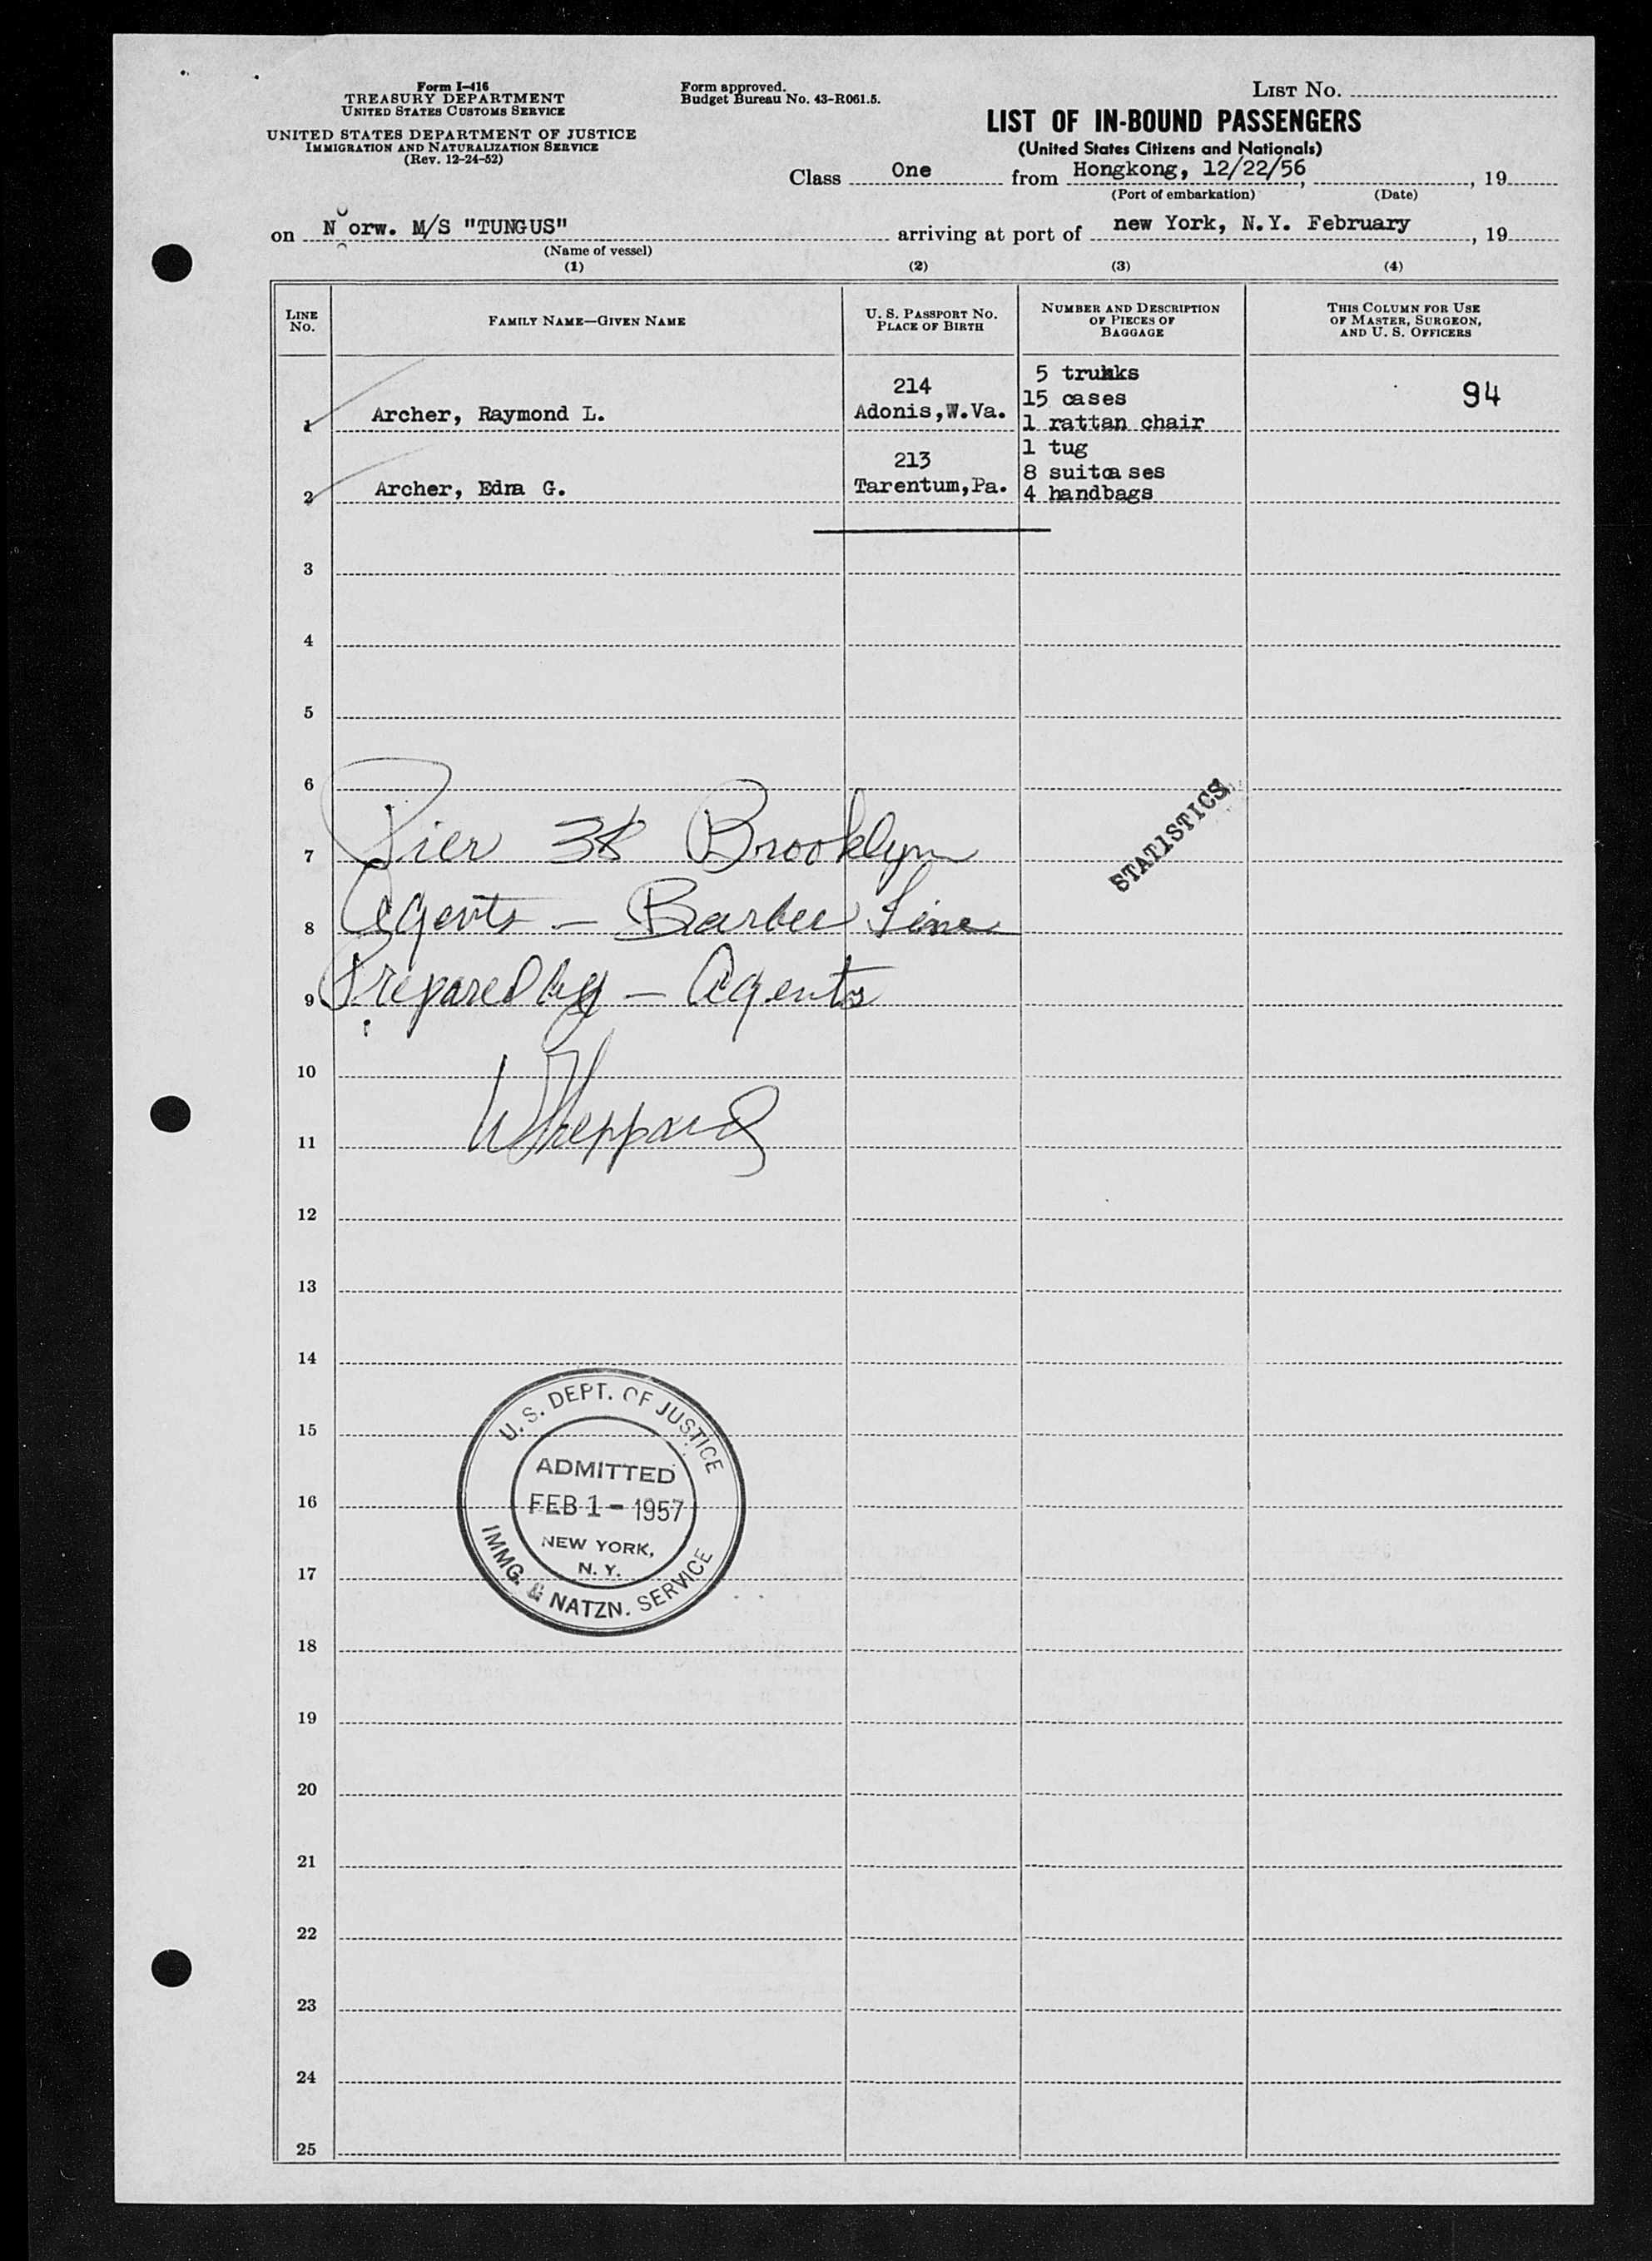 Form I-416
TREASURY DEPARTMENT
UNITED STATES CUSTOMS SERVICE
UNITED STATES DEPARTMENT OF JUSTICE
IMMIGRATION AND NATURALIZATION SERVICE
(Rev. 12-24-52)
Form approved.
Budget Bureau No. 43-R061.5.
LIST NO.
LIST OF IN-BOUND PASSENGERS
(United States Citizens and Nationals)
Class One from Hongkong, 12/22/56, , 19
(Port of embarkation) (Date)
on Norw. M/S "TUNGUS" arriving at port of new York, N.Y. February , 19
(Name of vessel)
(1) (2) (3) (4)
LINE NO. FAMILY NAME—GIVEN NAME U. S. PASSPORT NO. PLACE OF BIRTH NUMBER AND DESCRIPTION OF PIECES OF BAGGAGE THIS COLUMN FOR USE OF MASTER, SURGEON, AND U. S. OFFICERS
5 trunks
214 94
15 cases
1 Archer, Raymond L. Adonis,W.Va.
1 rattan chair
1 tug
213
8 suitcases
2 Archer, Edna G. Tarentum,Pa.
4 handbags
3
4
5
6
STATISTICS
7 Pier 38 Brooklyn
8 Agents — Barber Line
9 Prepared by — Agents
10
11 WSheppard
12
13
14
15
U. S. DEPT. OF JUSTICE
ADMITTED
16
FEB 1 - 1957
NEW YORK,
N. Y.
17
IMMG. & NATZN. SERVICE
18
19
20
21
22
23
24
25